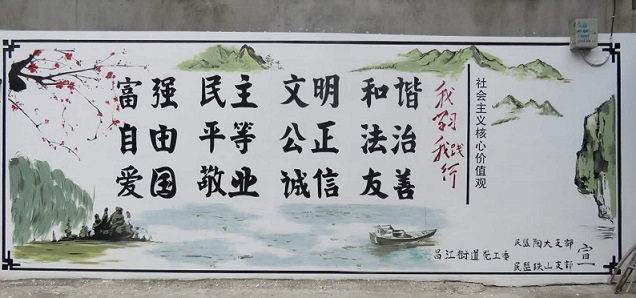 富强 民主 文明 和谐
自由 平等 公正 法治
爱国 敬业 诚信 友善
我学习
我践行
社会主义核心价值观
昌江街道党工委
民盟陶大支部
民盟铁山支部
宣